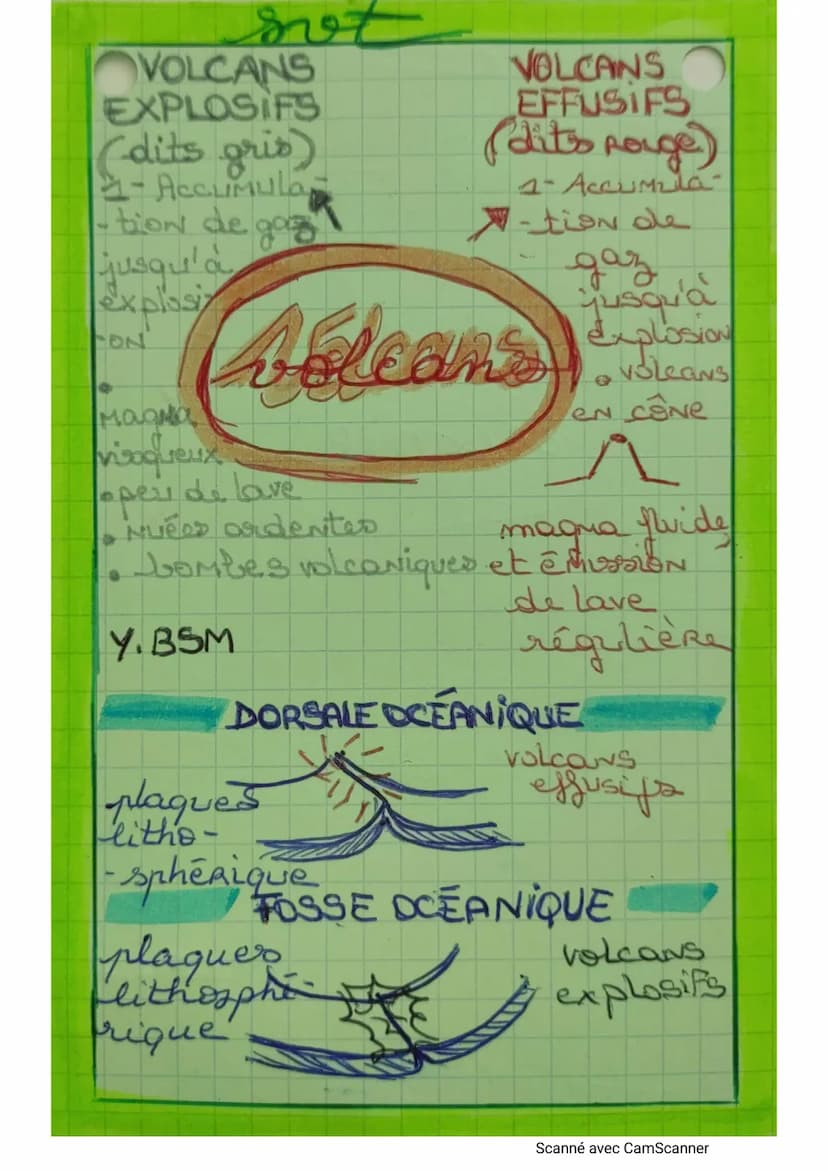 svt
VOLCANS
EXPLOSIFS
(dits gris)
1- Accumula-
-tion de gaz
jusqu'à
explosi-
-on
•
Magma
visqueux
• peu de lave
• nuées ardentes
• bombes volcaniques
Y. BSM
volcans
VOLCANS
EFFUSIFS
(dits rouge)
1- Accumula-
-tion de
gaz
jusqu'à
explosion
• volcans
en cône
magma fluide,
et émission
de lave
régulière
DORSALE OCÉANIQUE
volcans
effusifs
plaques
litho-
-sphérique
FOSSE OCÉANIQUE
plaques
lithosphé-
rique
volcans
explosifs
Scanné avec CamScanner